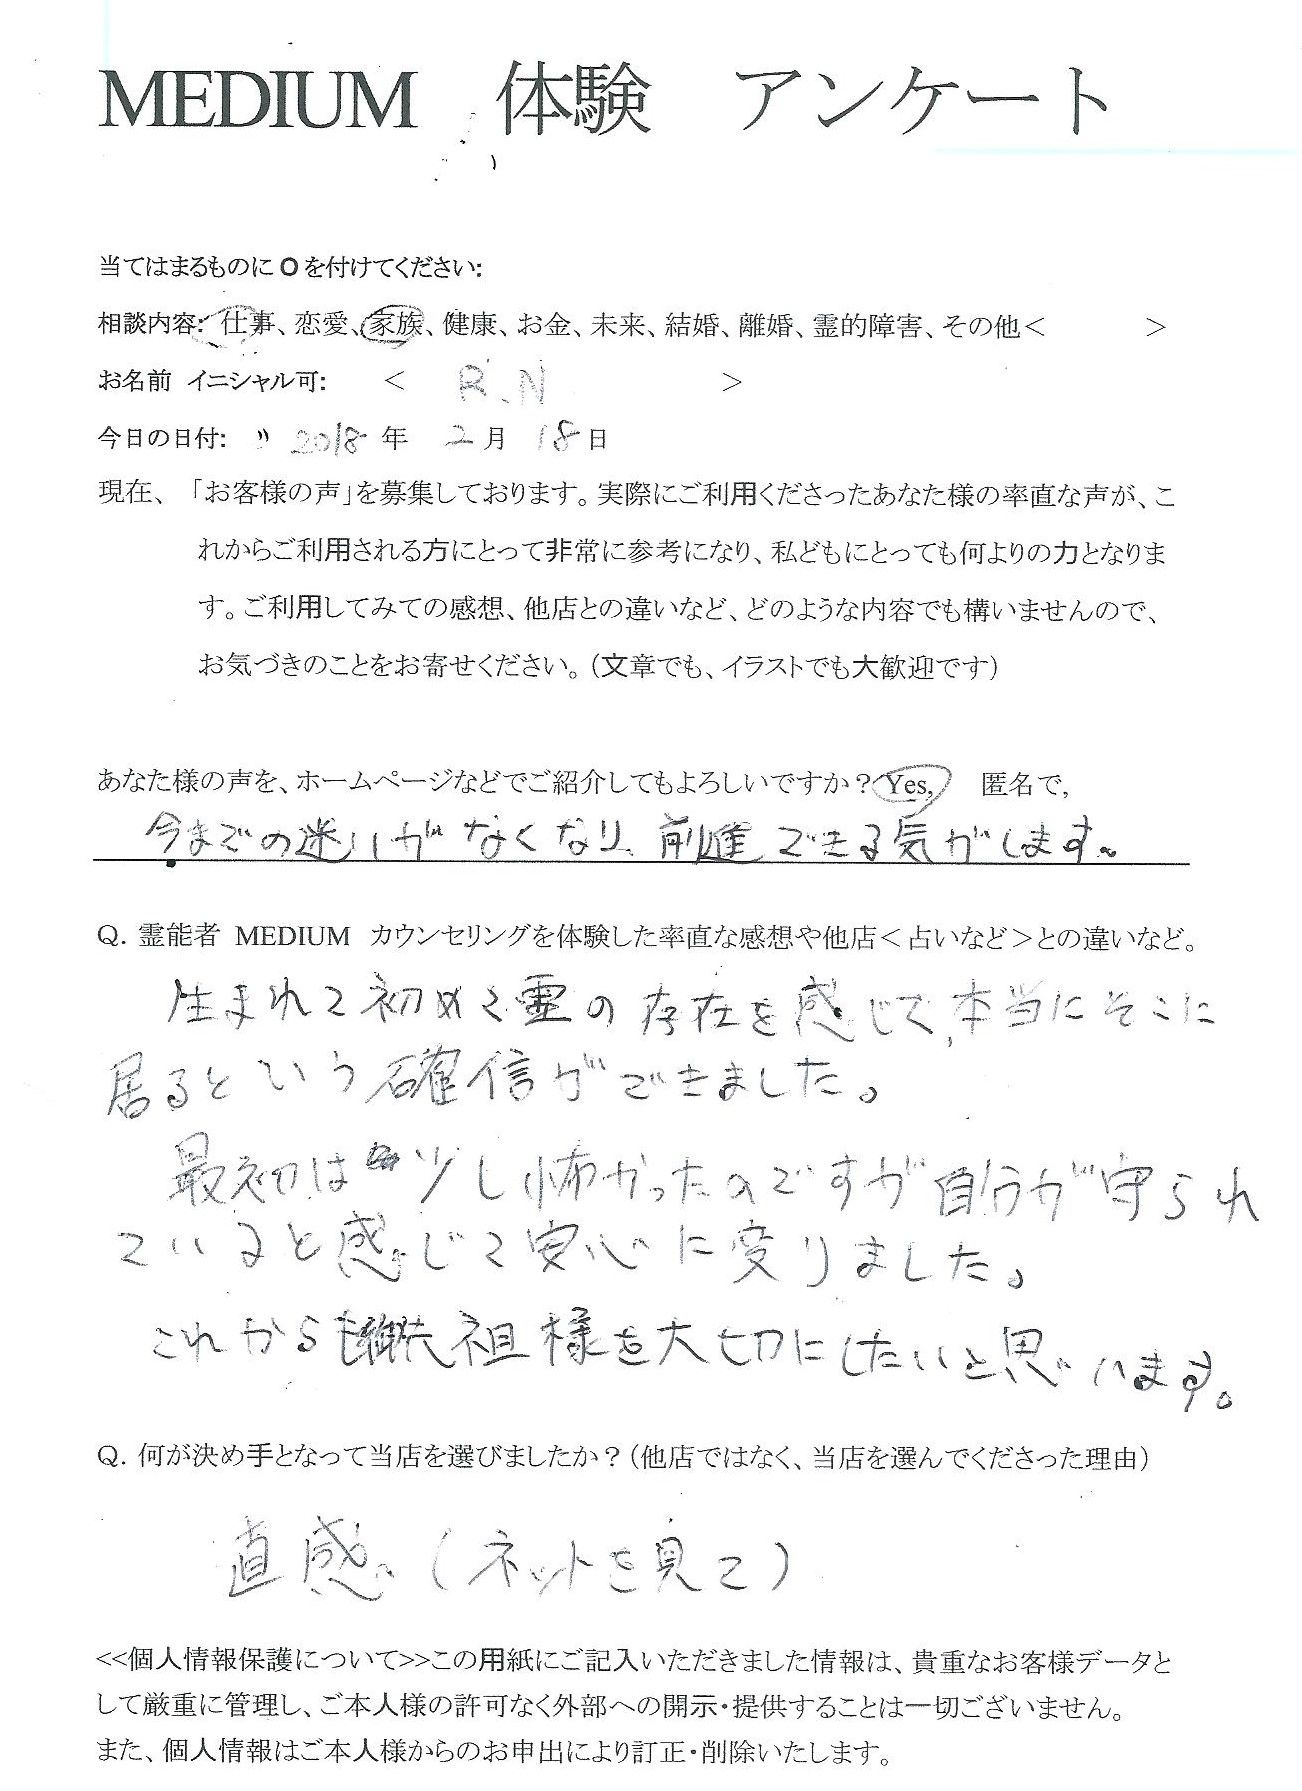 MEDIUM 体験 アンケート
当てはまるものに O を付けてください:
相談内容: 仕事、恋愛、家族、健康、お金、未来、結婚、離婚、霊的障害、その他＜ ＞
お名前 イニシャル可: ＜ R.N ＞
今日の日付: 2018 年 2 月 18 日
現在、「お客様の声」を募集しております。実際にご利用くださったあなた様の率直な声が、こ
れからご利用される方にとって非常に参考になり、私どもにとっても何よりの力となりま
す。ご利用してみての感想、他店との違いなど、どのような内容でも構いませんので、
お気づきのことをお寄せください。（文章でも、イラストでも大歓迎です）
あなた様の声を、ホームページなどでご紹介してもよろしいですか？Yes, 匿名で,
今までの迷いがなくなり、前進できる気がします。
Q. 霊能者 MEDIUM カウンセリングを体験した率直な感想や他店＜占いなど＞との違いなど。
生まれて初めて霊の存在を感じて、本当にそこに
居るという確信ができました。
最初は少し怖かったのですが自分が守られ
ていると感じて安心に変りました。
これからも御先祖様を大切にしたいと思います。
Q. 何が決め手となって当店を選びましたか？（他店ではなく、当店を選んでくださった理由）
直感。（ネットを見て）
<<個人情報保護について>>この用紙にご記入いただきました情報は、貴重なお客様データと
して厳重に管理し、ご本人様の許可なく外部への開示・提供することは一切ございません。
また、個人情報はご本人様からのお申出により訂正・削除いたします。